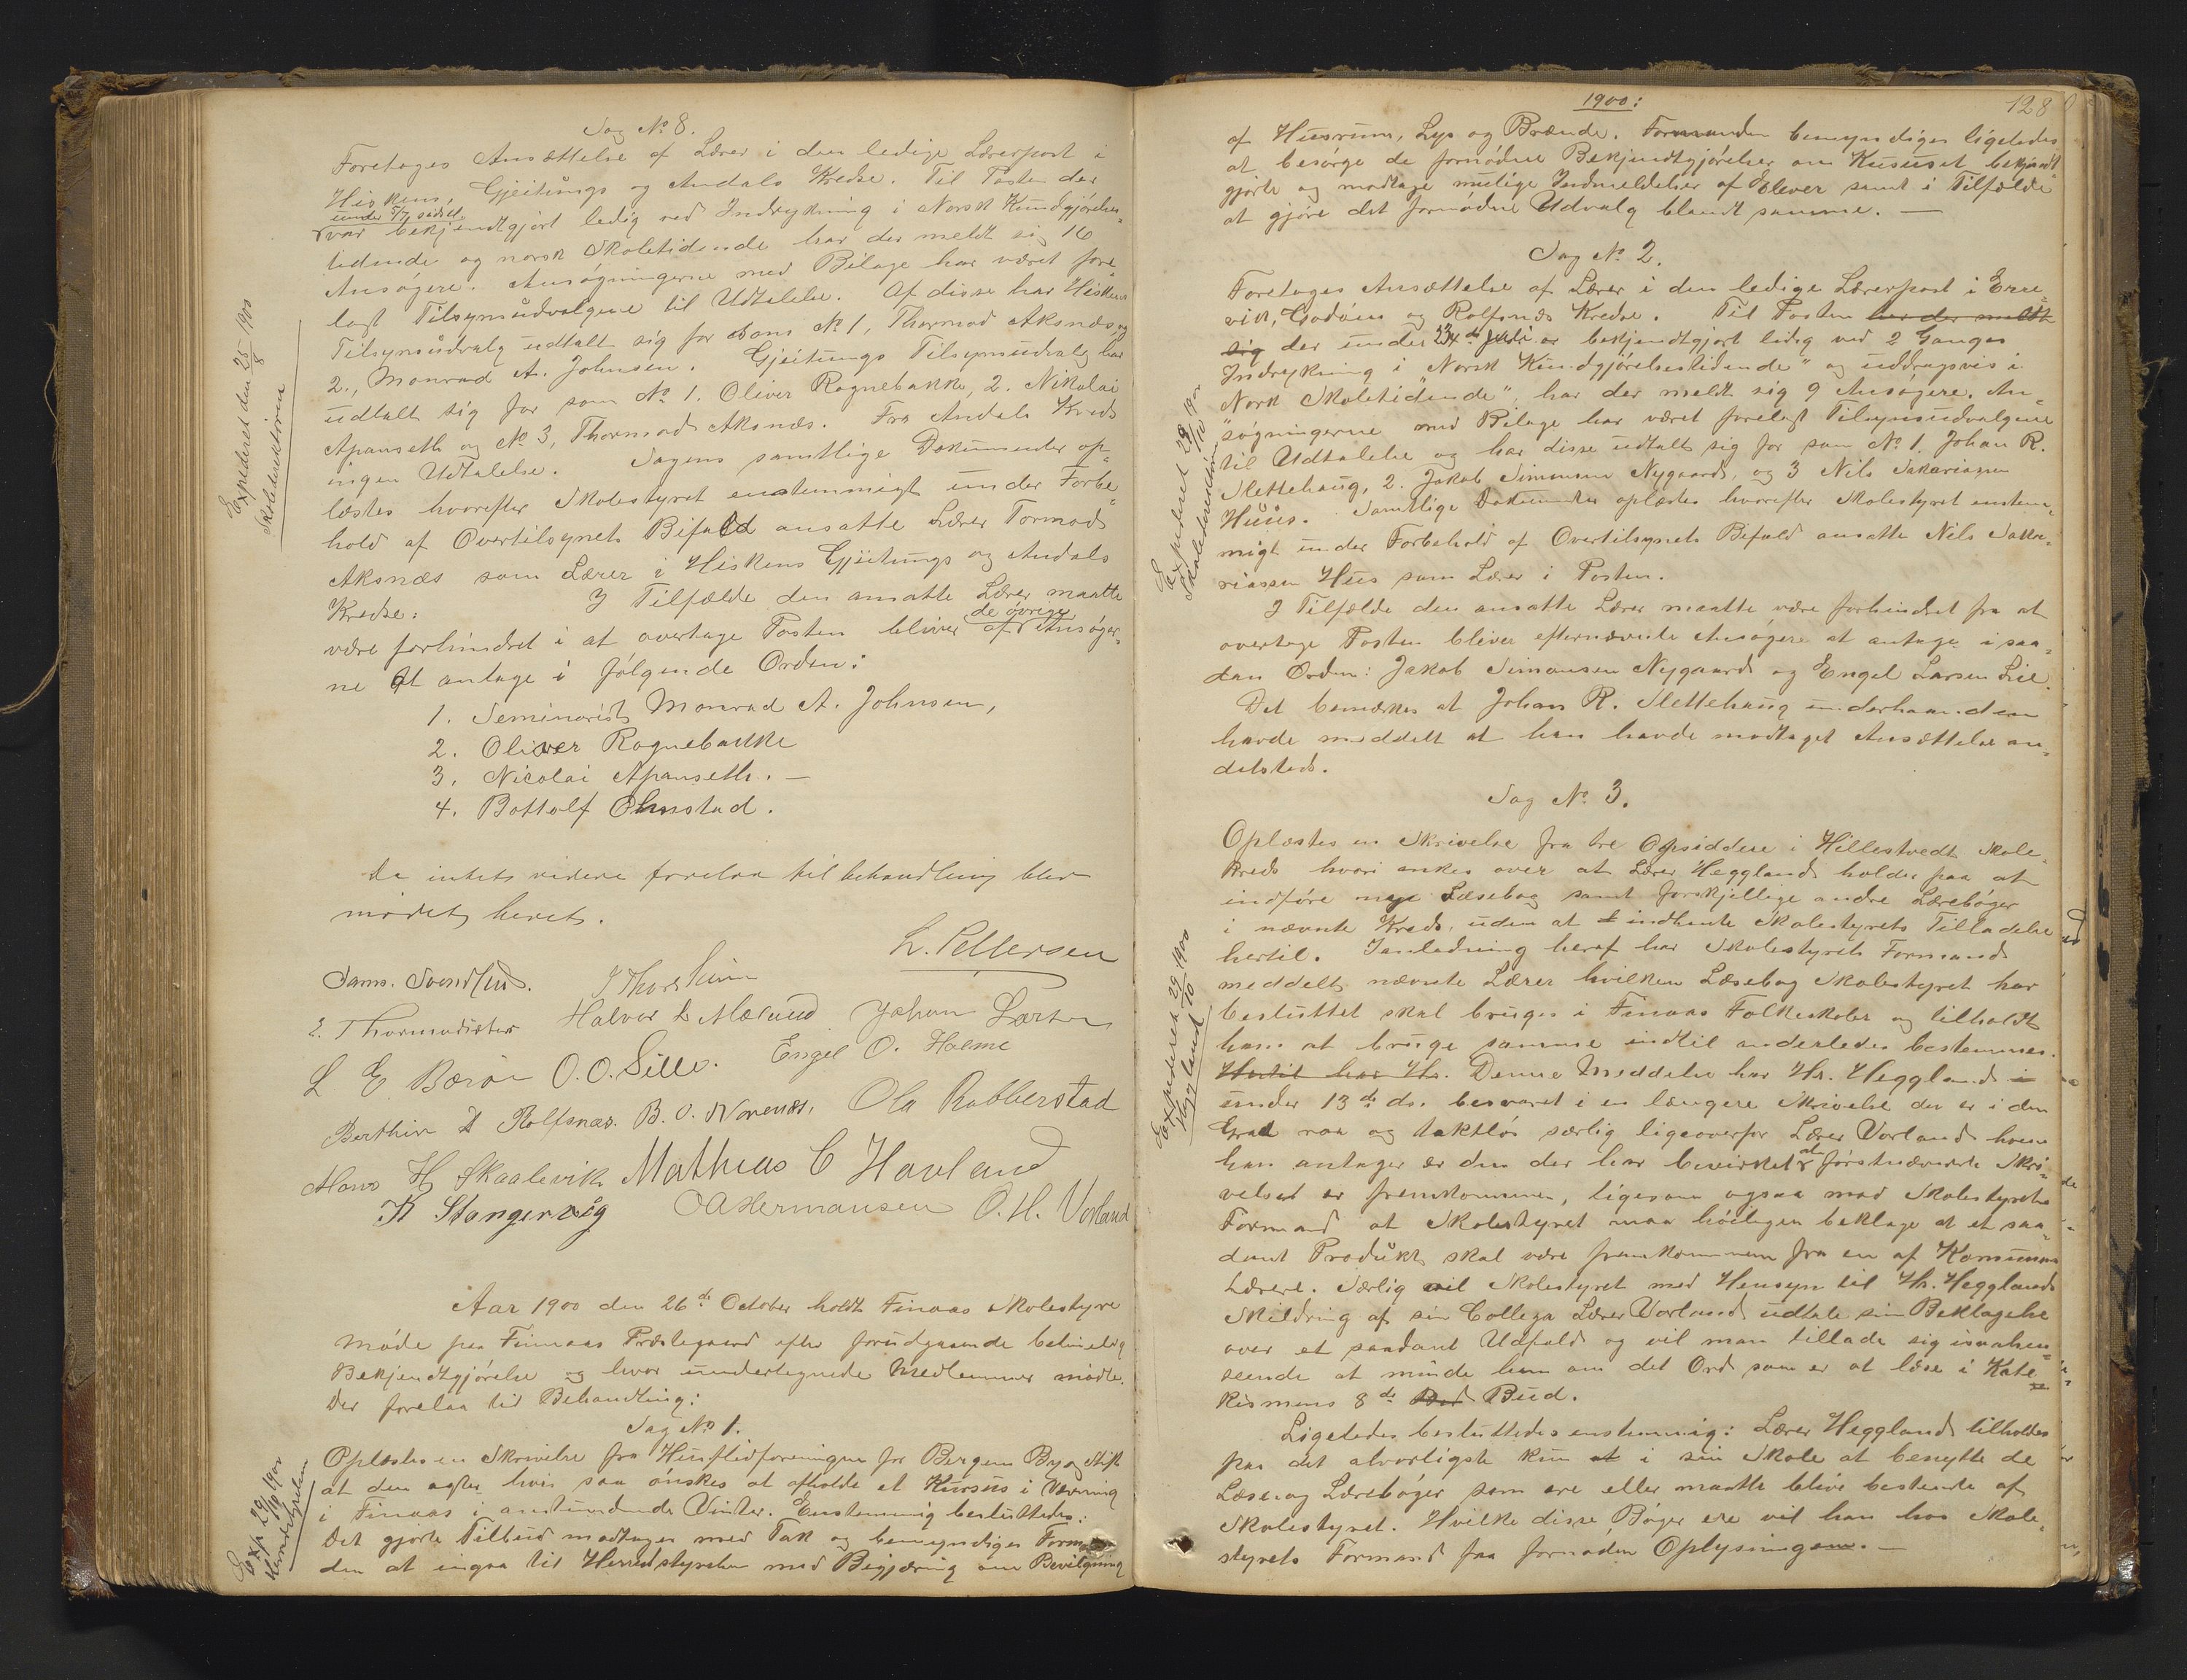 Sag No 8.
Foretoges Ansættelse af Lærer i den ledige Lærerpost i
Hiskens, Gjeitungs og Andals Kredse. Til Posten der
under 5/7 sidstl.
var bekjendtgjort ledig ved Indrykning i Norsk Kundgjørelses-
tidende og norsk Skoletidende har der meldt sig 16
Ansøgere. Ansøgningerne med Bilage har været fore-
lagt Tilsynsudvalgene til Udtalelse. Af disse har Hiskens
Tilsynsudvalg udtalt sig for som No 1, Thormod Aksnæs og
2., Monrad A. Johnsen. Gjeitungs Tilsynsudvalg har
udtalt sig for som No 1. Oliver Rognebakke, 2. Nikolai
Apanseth og No 3, Thormod Aksnæs. Fra Andals Kreds
ingen Udtalelse. Sagens samtlige Dokumenter op-
læstes hvorefter Skolestyret enstemmigt under Forbe-
hold af Overtilsynets Bifald ansatte Lærer Tormod
Aksnæs som Lærer i Hiskens Gjeitungs og Andals
Kredse: I Tilfælde den ansatte Lærer maatte
være forhindret i at overtage Posten bliver af de øvrige Ansøger-
ne at antage i følgende Orden:
1. Seminarist Monrad A. Johnsen,
2. Oliver Rognebakke
3. Nicolai Apanseth. —
4. Bottolf Ohnstad.
Da intet videre forelaa til behandling blev
mødet hevet.
L. Pettersen
Sams. Svendsen. J Thorsheim
E. Thormodsæter Halvor L Mælund Johan Larsen
L E Børøe O. O. Sille. Engel O. Holme
Berthin D Rolfsnæs. B. O. Norenæs, Ola Robberstad
Hans H Skaalevik Mathias C Hovland
K Stangervåg O A Hermansen O. H. Vorland
Aar 1900 den 26de October holdt Finaas Skolestyre
Møde paa Finnaas Præstegaard efter forudgaaende betimelig
Bekjendtgjørelse og hvor undertegnede Medlemmer mødte.
Der forelaa til Behandling:
Sag No 1.
Oplæstes en Skrivelse fra Husflidforeningen for Bergens By og Stift
at den agter hvis saa ønskes at afholde et Kursus i Vævning
i Finaas i anstundende Vinter. Enstemmig besluttedes:
Det gjorte Tilbud modtages med Tak og bemyndiges Forman-
den at ingaa til Herredsstyrelsen med Begjæring om Bevilgning
Expederet den 25/8 1900
Skoledirektøren
Exp 29/10 1900
Herredstyrelsen
1900:
128
af Husrum, Lys og Brænde. Formanden bemyndiges ligeledes
at besørge de fornødne Bekjendtgjørelser om Kursuset bekjendt-
gjorte og modtage mulige Indmeldelser af Elever samt i Tilfælde
at gjøre det fornødne Udvalg blandt samme. —
Sag No 2.
Foretoges Ansættelse af Lærer i den ledige Lærerpost i Ere-
vik, Godøens og Rolfsnæs Kredse. Til Posten har der meldt
sig der under Juli er bekjendtgjort ledig ved 2 Ganges
Indrykning i "Norsk Kundgjørelsestidende" og uddragsvis i
"Norsk Skoletidende", har der meldt sig 9 Ansøgere. An-
søgningerne med Bilage har været forelagt Tilsynsudvalgene
til Udtalelse og har disse udtalt sig for som No 1. Johan R.
Slettehaug, 2. Jakob Simonsen Nygaard, og 3 Nils Sakariasen
Huus. Samtlige Dokumenter oplæstes hvorefter Skolestyret enstem-
migt under Forbehold af Overtilsynets Bifald ansatte Nils Saka-
riassen Hus som Lærer i Posten.
I Tilfælde den ansatte Lærer maatte være forhindret fra at
overtage Posten bliver efternævnte Ansøgere at antage i saa-
dan Orden: Jakob Simonsen Nygaard og Engel Larsen Lie.
Det bemærkes at Johan R. Slettehaug underhaanden
havde meddelt at han havde modtaget Ansættelse an-
detsteds.
Sag No 3.
Oplæstes en Skrivelse fra tre Opsiddere i Hillestvedt Skole-
kreds hvori ankes over at Lærer Heggland holder paa at
indføre nye Læsebog samt forskjellige andre Lærebøger
i nævnte Kreds, uden at indhente Skolestyrets Tilladelse
hertil. I anledning heraf har Skolestyrets Formand
meddelt nævnte Lærer hvilken Læsebog Skolestyret har
besluttet skal bruges i Finaas Folkeskoler og tilholdt
ham at bruge samme indtil anderledes bestemmes.
Hertil har Hr. Denne Meddelse har Hr. Heggland i
under 13de ds. besvaret i en længere Skrivelse der er i den
Grad raa og taktløs særlig ligeoverfor Lærer Vorland hvem
han antager er den der har bevirket at førstnævnte Skri-
velse er fremkommen, ligesom ogsaa mod Skolestyrets
Formand at Skolestyret maa høiligen beklage at et saa-
dant Produkt skal være fremkommen fra en af Kommunens
Lærere. Særlig vil Skolestyret med Hensyn til Hr. Hegglands
Skildring af sin Collega Lærer Vorland udtale sin Beklagelse
over et saadant Udfald og vil man tillade sig isaahen-
seende at minde ham om det Ord som er at læse i Kate-
kismens 8de Bud.
Ligeledes besluttedes enstemmig: Lærer Heggland tilholdes
paa det alvorligste kun at i sin Skole at benytte de
Læse og Lærebøger som ere eller maatte blive bestemte af
Skolestyret. Hvilke disse Bøger ere vil han hos Skole-
styrets Formand faa fornøden Oplysningen. —
Expederet 29/10 1900
Skoledirektøren
Expederet 29/10 1900
Heggland